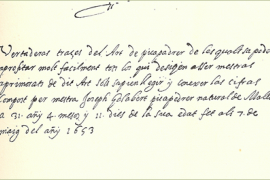 Vertaderas traçes del Art de picapedrer de les quals se poden
aprofitar molt facilment tots los qui desitgen a ser mestras
aprimorats de dit Art sols sapien llegir y conexer las cifras
Compost per mestra Joseph Gelabert picapedrer natural de Mall
a 31 añy 4 mesos y 11 dies de la sua edat fet als 7 de
maig del añy 1653